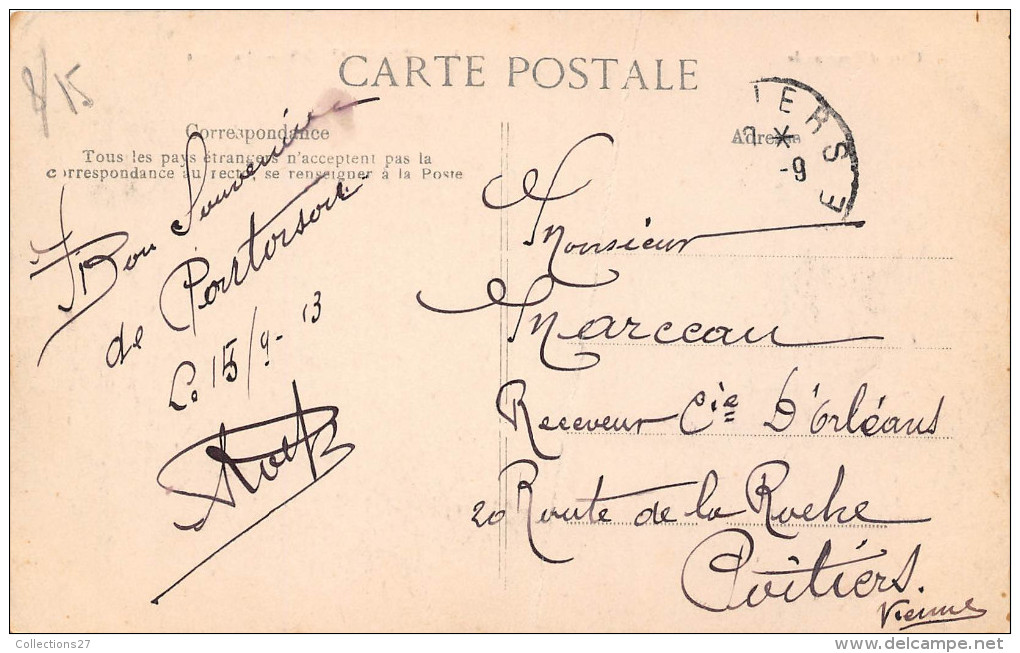 8/15
CARTE POSTALE
Correspondance
Tous les pays étrangers n'acceptent pas la
correspondance au recto, se renseigner à la Poste
Adresse
IERS E
-9
Bon Souvenir
de Pontorson
Le 15/9-13
Monsieur
Marceau
Receveur Cie D'Orléans
20 Route de la Roche
Poitiers.
Vienne
Collections27
www.delcampe.net